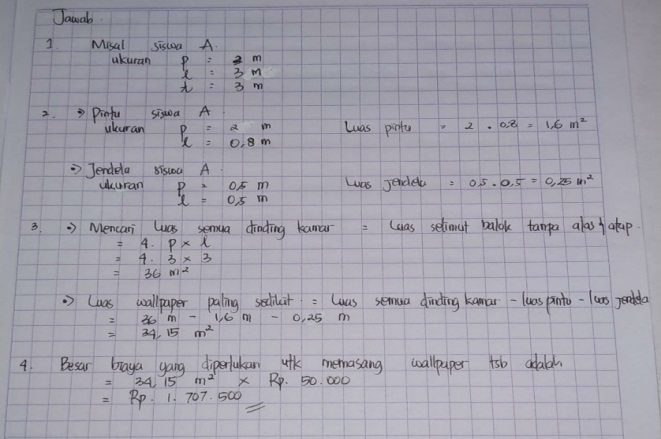 Jawab.
1. Misal siswa A.
ukuran p = 3 m
l = 3 m
t = 3 m
2. → Pintu siswa A
ukuran p = 2 m Luas pintu = 2 . 0,8 = 1,6 m²
l = 0,8 m
→ Jendela siswa A
ukuran p = 0,5 m Luas jendela = 0,5 . 0,5 = 0,25 m²
l = 0,5 m
3. → Mencari luas semua dinding kamar = Luas selimut balok tanpa alas & atap.
= 4. p x l
= 4. 3 x 3
= 36 m²
→ Luas wallpaper paling sedikit = Luas semua dinding kamar - luas pintu - luas jendela
= 36 m - 1,6 m - 0,25 m
= 34,15 m²
4. Besar biaya yang diperlukan utk memasang wallpaper tsb adalah
= 34,15 m² x Rp. 50.000
= Rp. 1.707.500